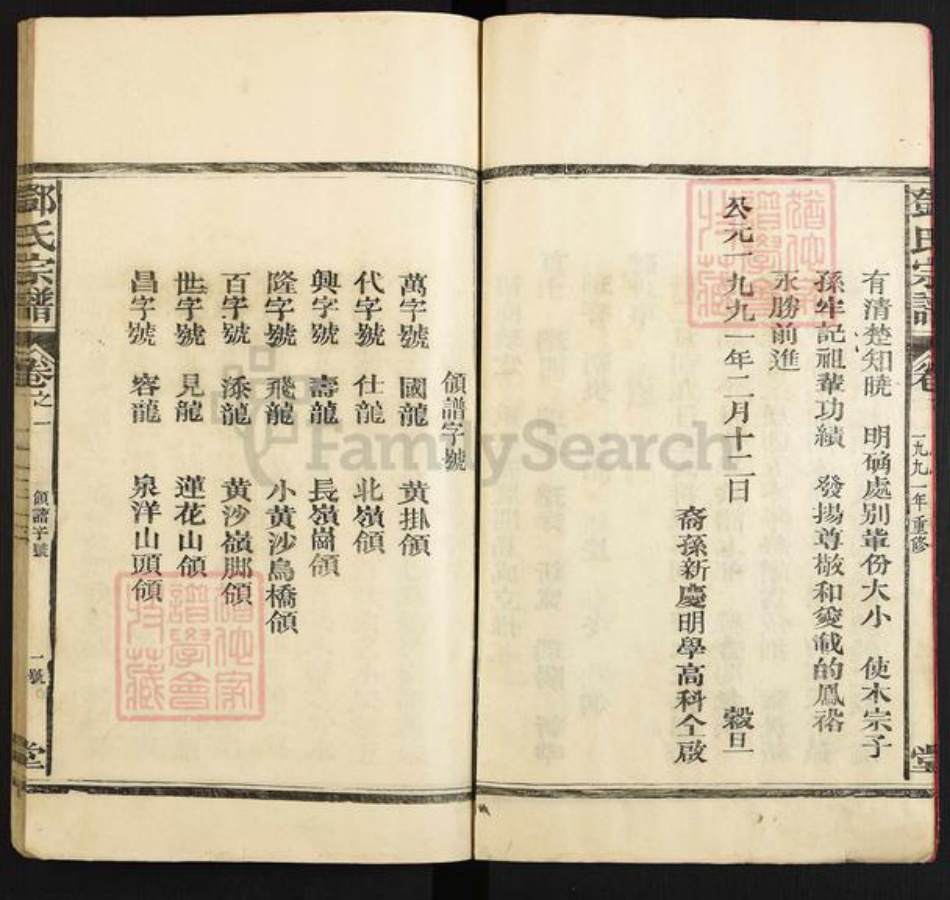 鄧氏宗譜 卷 一九九一年重修 堂
有清楚知曉 明确處別輩份大小 使本宗子
孫牢記祖輩功績 發揚尊敬和愛戴的風格
永勝前進
公元一九九一年二月十二日 穀旦
裔孫新慶明學高科仝啟
領譜字號
萬字號 國龍 黄掛領
代字號 仕龍 北嶺領
興字號 壽龍 長嶺崗領
隆字號 飛龍 小黄沙鳥橋領
百字號 添龍 黄沙嶺脚領
世字號 見龍 蓮花山領
昌字號 容龍 泉洋山頭領
鄧氏宗譜 卷之一 領譜字號 一號 堂
猶他家
譜學會
特藏
猶他家
譜學會
特藏
FamilySearch